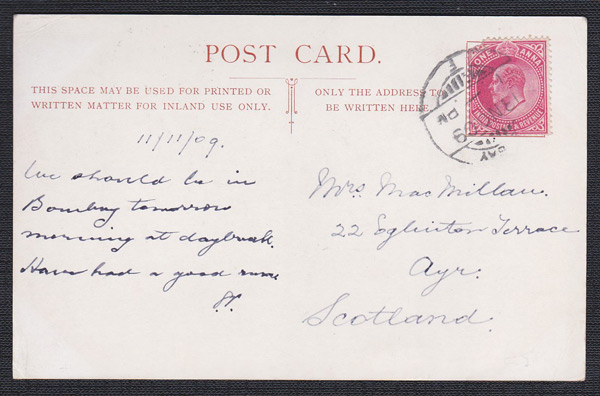 POST CARD.
THIS SPACE MAY BE USED FOR PRINTED OR
WRITTEN MATTER FOR INLAND USE ONLY.
ONLY THE ADDRESS TO
BE WRITTEN HERE.
ONE ANNA
INDIA POSTAGE & REVENUE
11/11/09.
We should be in
Bombay tomorrow
morning at daybreak.
Have had a good run
Mrs. MacMillan.
22 Eglinton Terrace
Ayr.
Scotland.